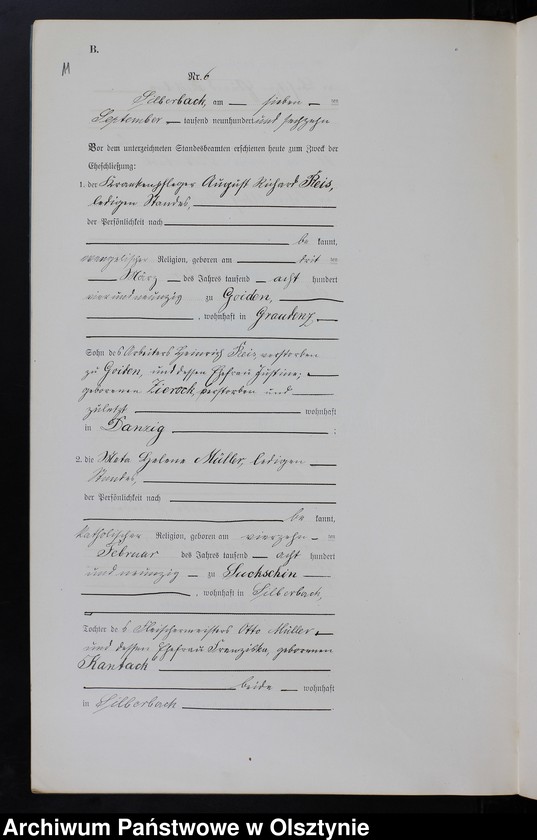 B.
M
Nr. 6
Silberbach, am — sieben — ten
September — tausend neunhundert und sechzehn
Vor dem unterzeichneten Standesbeamten erschienen heute zum Zweck der
Eheschließung:
1. der Krankenpfleger August Richard Reis,
ledigen Standes,
der Persönlichkeit nach
be kannt,
evangelischer Religion, geboren am — dritten
März — des Jahres tausend — acht hundert
vierundneunzig zu Goiden,
, wohnhaft in Graudenz,
Sohn des Arbeiters Heinrich Reis, verstorben
zu Goiden, und dessen Ehefrau Justine,
geborenen Zieroch, verstorben und
zuletzt wohnhaft
in Danzig ;
2. die Meta Helene Müller, ledigen
Standes,
der Persönlichkeit nach
be kannt,
katholischer Religion, geboren am vierzehn - ten
Februar des Jahres tausend — acht hundert
und neunzig — zu Suchschin
, wohnhaft in Silberbach,
Tochter des Fleischermeisters Otto Müller
und dessen Ehefrau Franziska, geborenen
Kantack
beide — wohnhaft
in Silberbach
Archiwum Państwowe w Olsztynie